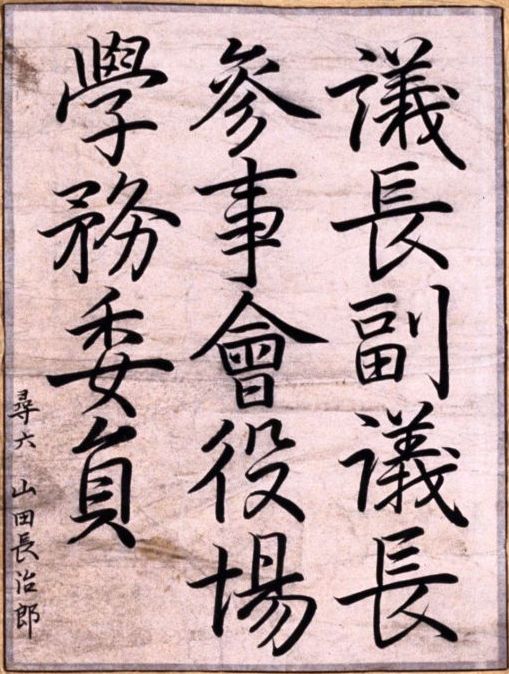 議長副議長
參事會役場
學務委員
尋六 山田長治郎